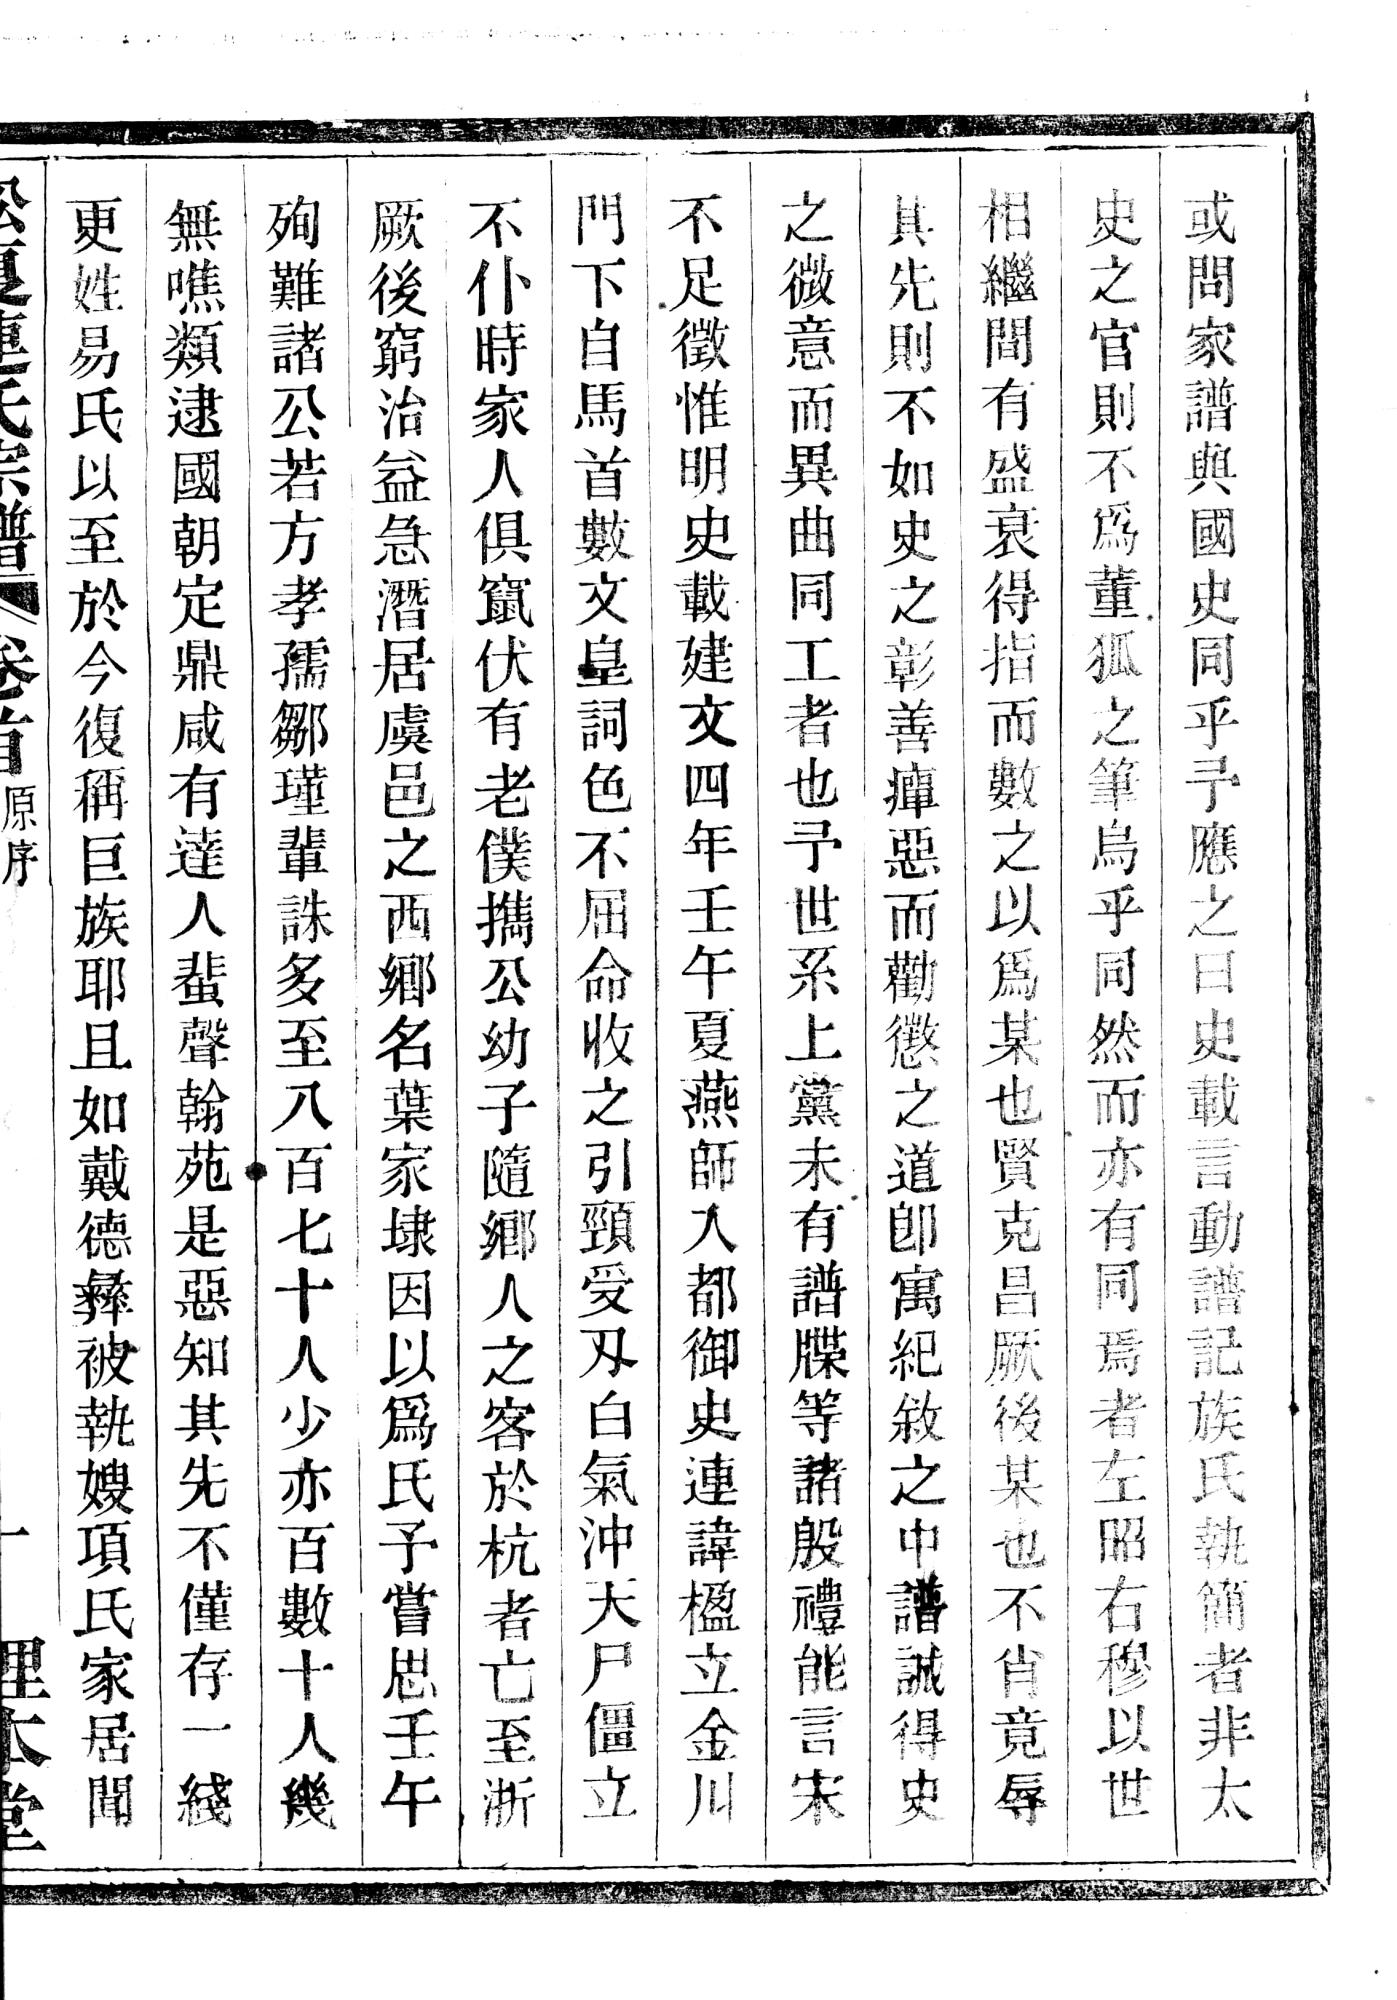 或問家譜與國史同乎予應之曰史載言動譜記族氏執簡者非太
史之官則不爲董狐之筆烏乎同然而亦有同焉者左昭右穆以世
相繼間有盛衰得指而數之以爲某也賢克昌厥後某也不肖竟辱
其先則不如史之彰善癉惡而勸懲之道卽寓紀敘之中譜誠得史
之微意而異曲同工者也予世系上黨未有譜牒等諸殷禮能言宋
不足徵惟明史載建文四年壬午夏燕師入都御史連諱楹立金川
門下自馬首數文皇詞色不屈命收之引頸受刃白氣沖天尸僵立
不仆時家人俱竄伏有老僕攜公幼子隨鄉人之客於杭者亡至浙
厥後窮治益急潛居虞邑之西鄉名葉家埭因以爲氏予嘗思壬午
殉難諸公若方孝孺鄒瑾輩誅多至八百七十人少亦百數十人幾
無噍類逮國朝定鼎咸有達人蜚聲翰苑是惡知其先不僅存一綫
更姓易氏以至於今復稱巨族耶且如戴德彝被執嫂項氏家居聞
松夏連氏宗譜 卷首 原序 一 理本堂